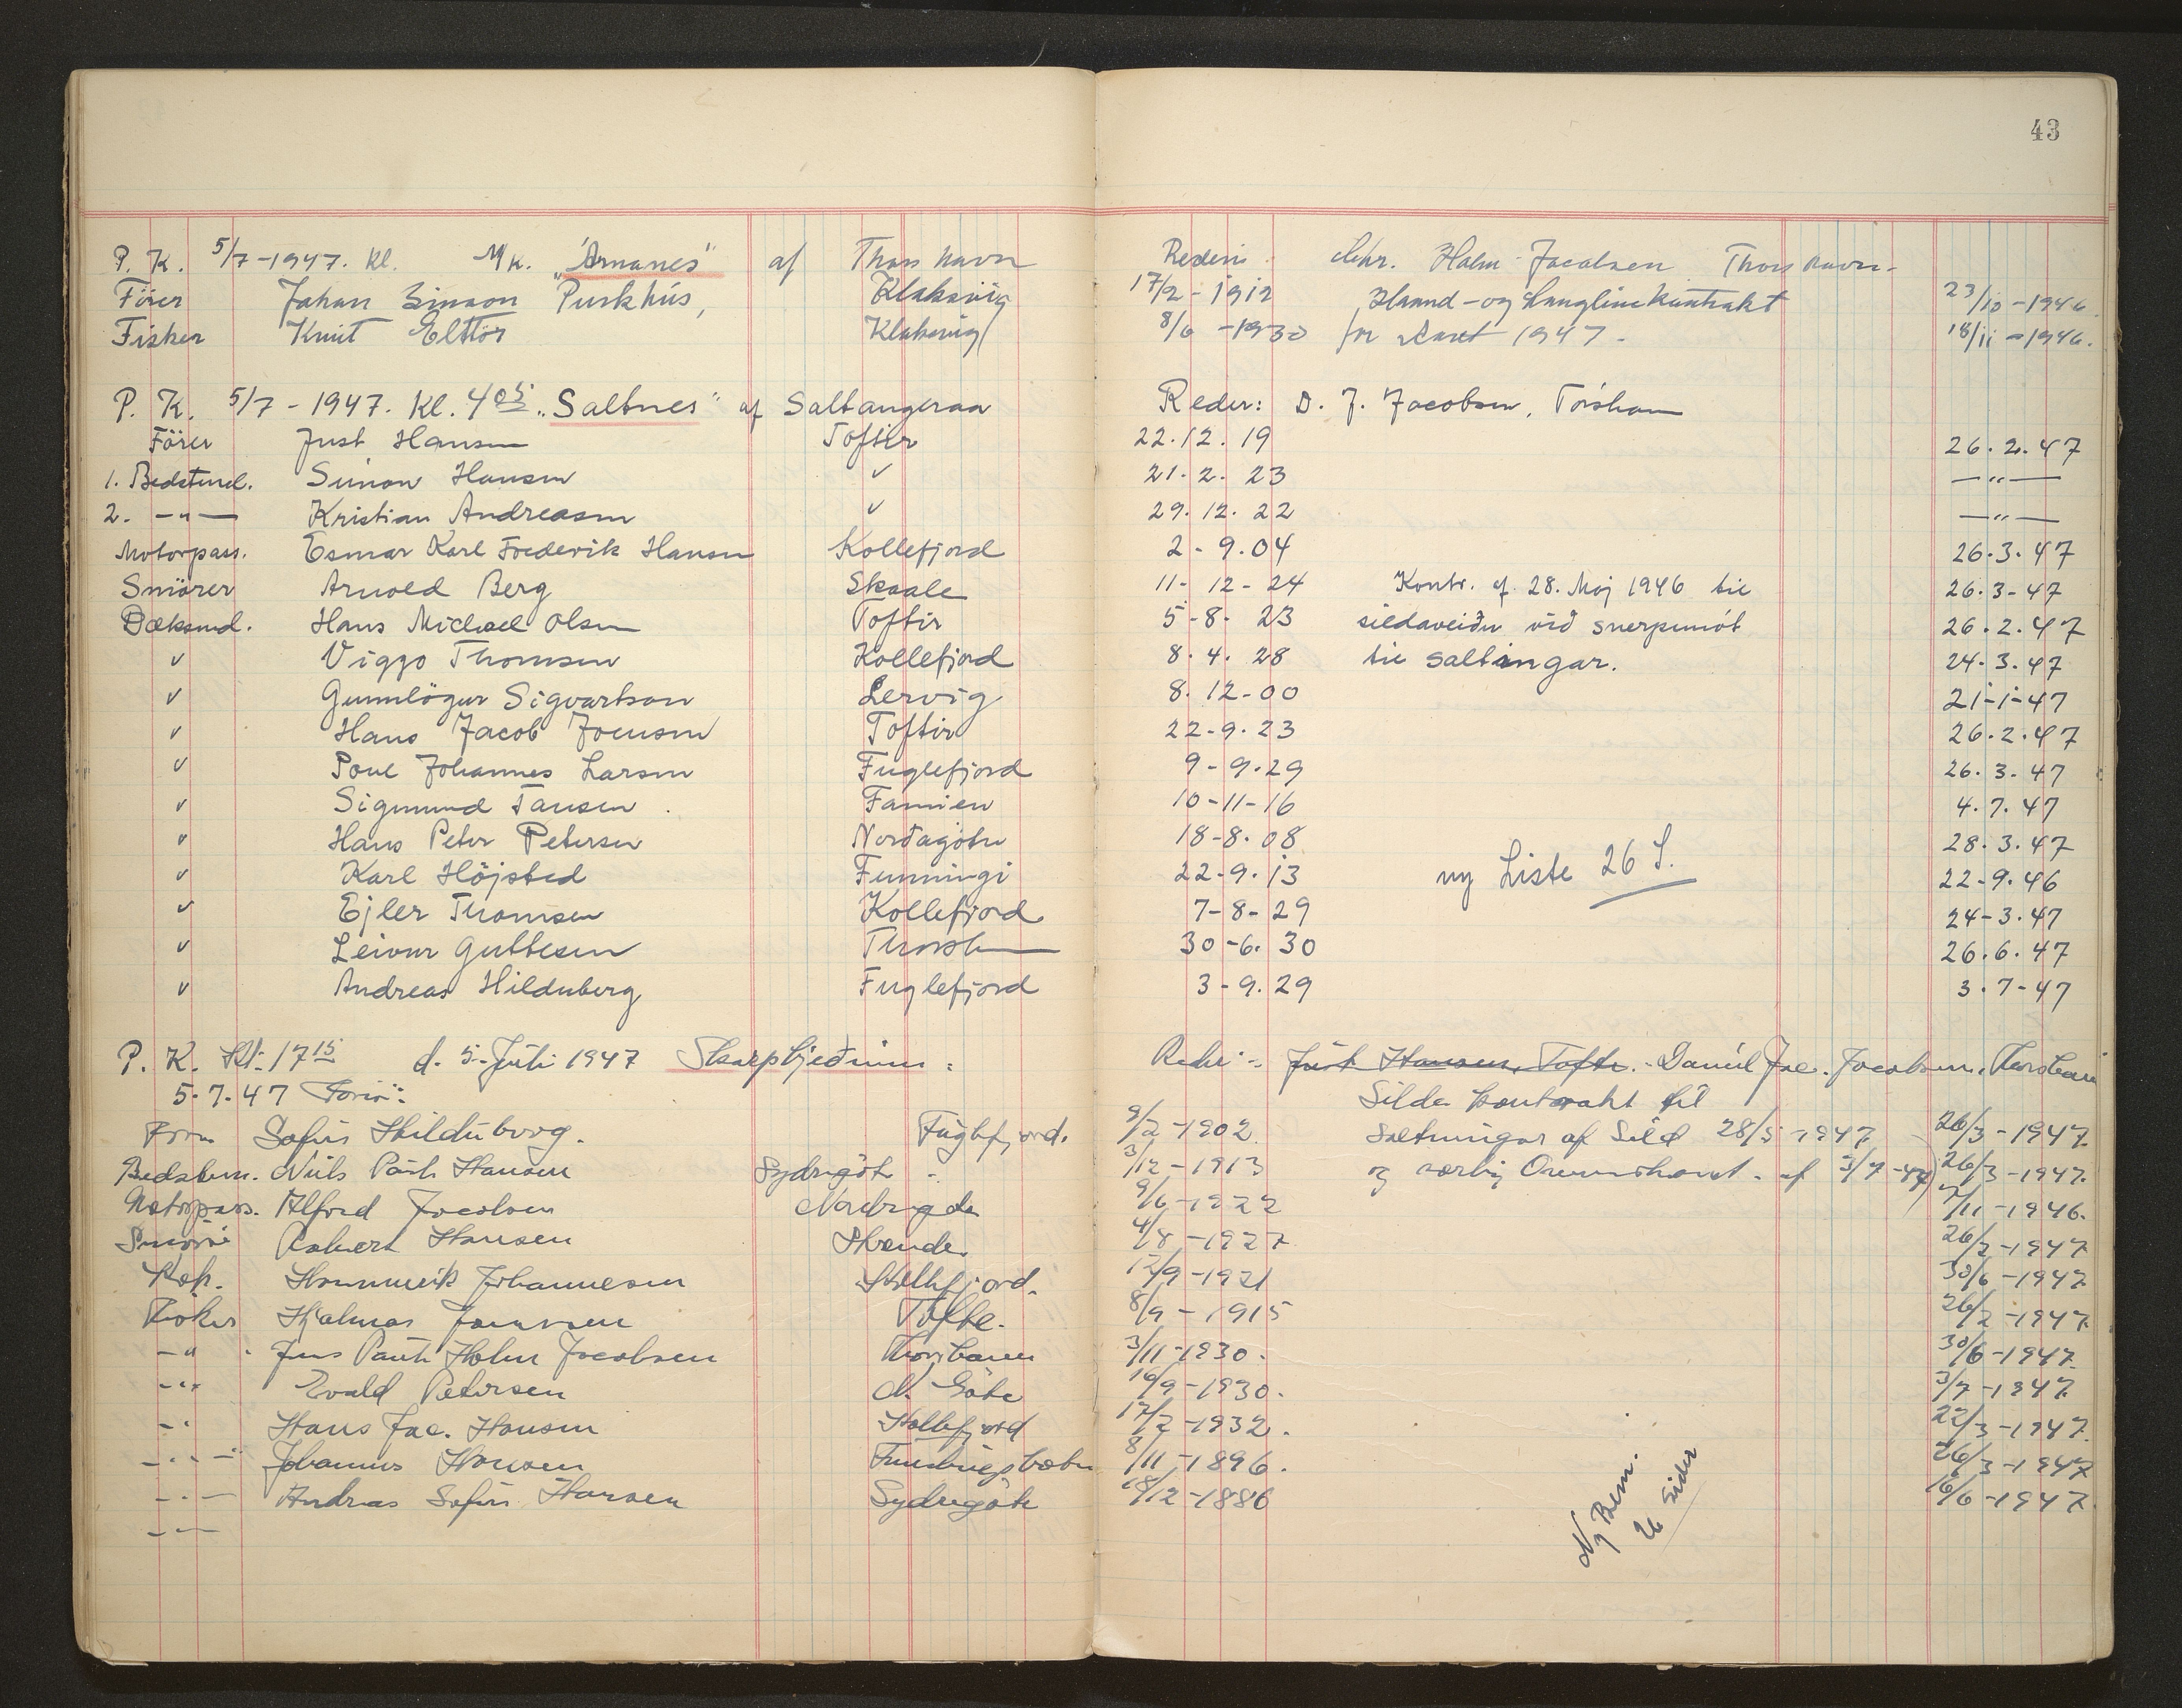 43
P. K. 5/7-1947. Kl. M/K. "Arnanes" af Thorshavn Rederi: Chr. Holm Jacobsen Thorshavn.
Förer Johan Simson Purkhús, Klaksvig 17/2-1912 Haand-og Langlinekontrakt 23/10-1946.
Fisker Knut Elttör Klaksvig 8/6-1930 for Aaret 1947. 18/11-1946.
P. K. 5/7-1947. Kl. 4 05 "Saltnes" af Saltangeraa Reder: D. J. Jacobsen, Tórshavn
Förer Just Hansen Toftir 22.12.19 26.2.47
1. Bedstmd. Simon Hansen ✓ 21.2.23 —"—
2. —"— Kristian Andreasen ✓ 29.12.22 —"—
Motorpass. Esmar Karl Frederik Hansen Kollefjord 2-9.04 26.3.47
Smörer Arnold Berg Skaale 11-12-24 Kontr. af 28. Maj 1946 til 26.3-47
Dæksmd. Hans Michael Olsen Toftir 5-8-23 sildaveiðu við snerpinót 26.2.47
✓ Viggo Thomsen Kollefjord 8.4.28 til saltingar. 24.3.47
✓ Gunnlögur Sigvartson Lervig 8.12-00 21-1-47
✓ Hans Jacob Joensen Toftir 22-9.23 26.2.47
✓ Poul Johannes Larsen Fuglefjord 9-9.29 26.3.47
✓ Sigmund Tausen Famien 10-11-16 4.7.47
✓ Hans Peter Petersen Norðagötu 18-8.08 28.3.47
✓ Karl Höjsted Funningi 22-9.13 ny Liste 26 S. 22-9.46
✓ Ejler Thomsen Kollefjord 7-8-29 24-3.47
✓ Leivur Guttesen Thorsh 30-6.30 26.6.47
✓ Andreas Hilduberg Fuglefjord 3-9.29 3.7-47
P. K. Kl. 17 15 d. 5. Juli 1947 Skarphjeðinn: Reder: Just Hansen, Tofte. Daniel Jac. Jacobsen, Thorshavn
5.7.47 Silda kontrakt til
Sofus Hilduborg. Fuglefjord. 9/2-1902. Saltningar af Sild 28/5-1947 26/3-1947.
Bedstem. Niels Pauli Hansen Sydrugöte 3/12-1913 og 3/7-47) 26/3-1947.
Motorpass. Alfred Jacobsen 9/6-1922 7/11-1946.
Smörer Robert Hansen 4/8-1927 26/2-1947
Kok. Johannesen Kollefjord. 12/9-1921 30/6-1947.
Fisker Hjalmar Joensen Tofte. 8/9-1915 26/2-1947.
-" Jens Pauli Holm Jacobsen Thorshavn 3/11-1930. 30/6-1947.
-"- Evald Petersen N. Göte 16/9-1930. 3/7-1947.
-" Hans Jac. Hansen Kollefjord 17/2-1932. 22/3-1947.
-"- Johannus Hansen Funningsbotn 8/11-1896. 26/3-1947
-"- Andreas Sofus Hansen Sydrugöte 18/12-1886 16/6-1947.
-"-
Ny Bem.
26 Sider